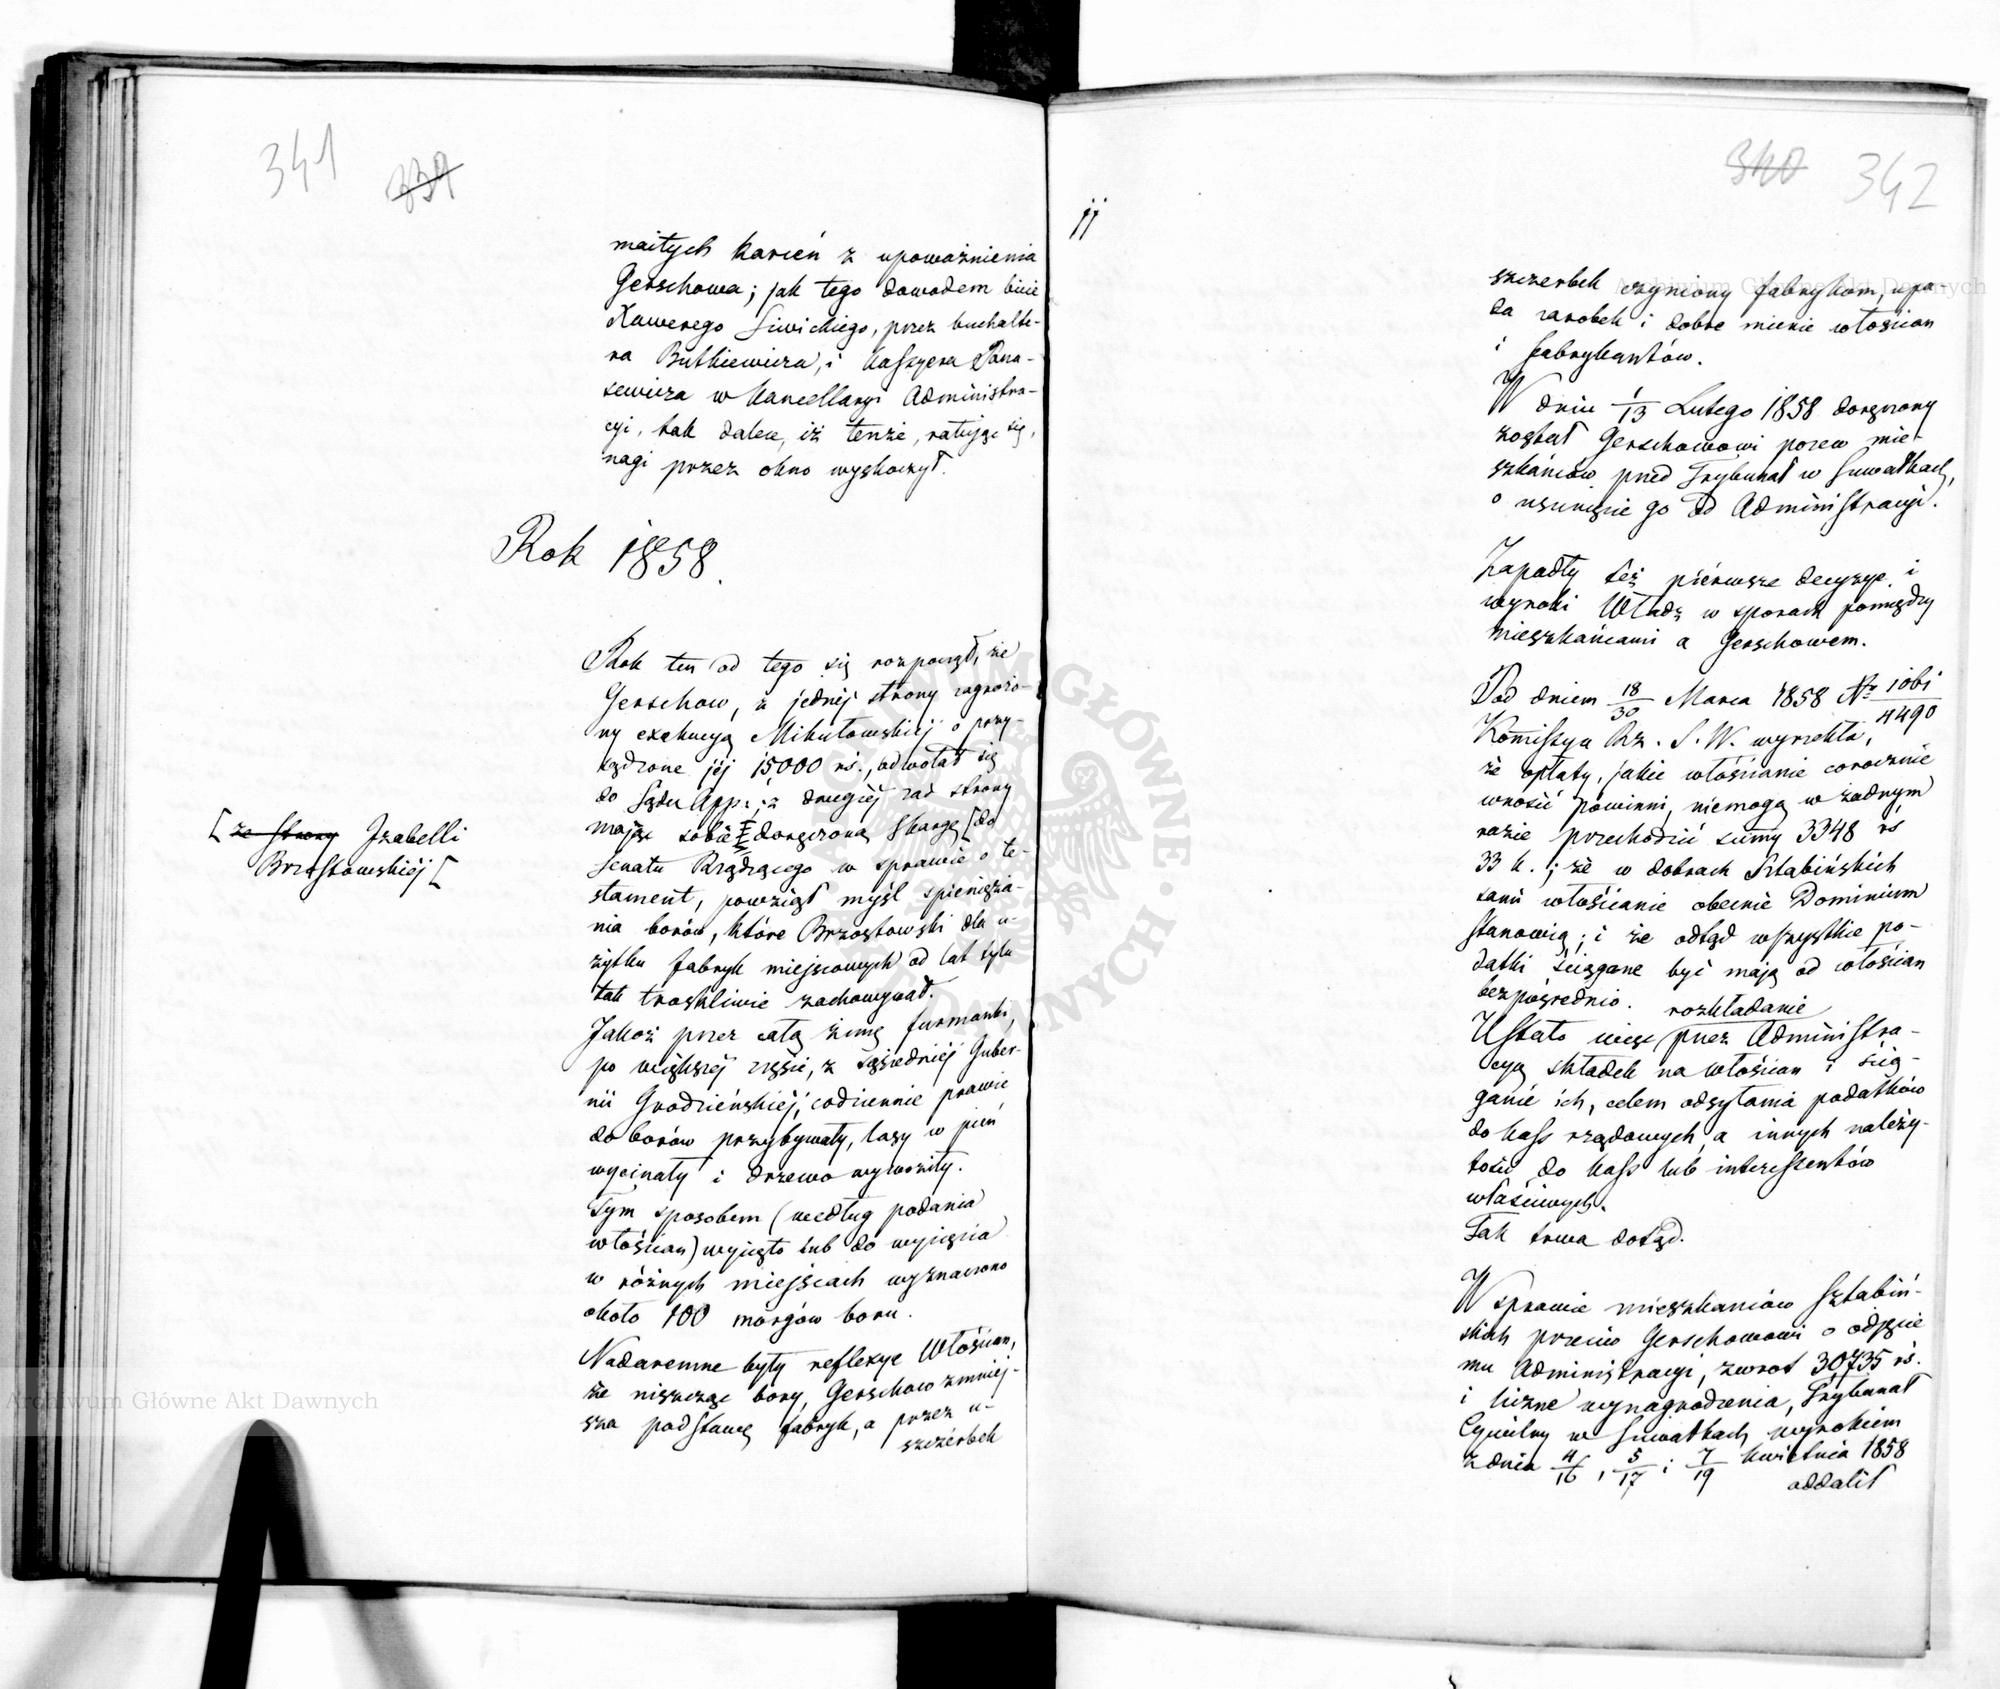 341 339
maitych karień z upoważnienia
Gerschowa; jak tego dowodem bicie
Xawerego Siwickiego, przez buchalte-
ra Butkiewicza, i kassyera Pana-
sewicza w kancellaryi Administra-
cyi, tak dalece, iż tenże, ratując się,
nagi przez okno wyskoczył.
Rok 1858.
Rok ten od tego się rozpoczął, że
Gerschow, z jednéj strony zagrożo-
ny exekucyą Mikułowskiéj o przy-
sądzone jéj 15000 rś., odwołał się
do Sądu App.; z drugiéj zaś strony
mając sobie doręczoną skargę [do
[ze strony Izabelli
Brzostowskiéj [
Senatu Rządzącego w sprawie o te-
stament, powziął myśl spienięża-
nia borów, które Brzostowski dla u-
żytku fabryk miejscowych od lat tylu
tak troskliwie zachowywał.
Jakoż przez całą zimę furmanki,
po większéj części, z sąsiedniéj Guber-
nii Grodzieńskiéj, codziennie prawie
do borów przybywały, lasy w pień
wycinały i drzewo wywoziły.
Tym sposobem (według podania
włościan) wycięto lub do wycięcia
w różnych miejscach wyznaczono
około 100 morgów boru.
Nadaremne były reflexye Włościan,
że niszcząc bory, Gerschow zmniej-
sza podstawę fabryk, a przez u-
szczerbek
jj
340 342
szczerbek czyniony fabrykom, upa-
da zarobek i dobre mienie włościan
i fabrykantów.
W dniu 1/13 Lutego 1858 doręczony
został Gerschowowi pozew mie-
szkańców przed Trybunał w Suwałkach,
o usunięcie go od Administracyi.
Zapadły też piérwsze decyzye i
wyroki Władz w sporach pomiędzy
mieszkańcami a Gerschowem.
Pod dniem 18/30 Marca 1858 Nr 1061/4490
Komissya Rz. S. W. wyrzekła,
że opłaty, jakie włościanie corocznie
wnosić powinni, niemogą w żadnym
razie przechodzić summy 3348 rś
33 k.; że w dobrach Sztabińskich
sami włościanie obecnie Dominium
stanowią; i że odtąd wszystkie po-
datki ściągane być mają od włościan
bezpośrednio.
rozkładanie
Ustało więc przez Administra-
cyą składek na włościan i ścią-
ganie ich, celem odsyłania podatków
do kass rządowych, a innych należy-
tości do kass lub interessentów
właściwych.
Tak trwa dotąd.
W sprawie mieszkańców Sztabiń-
skich przeciw Gerschowowi o odjęcie
mu Administracyi, zwrot 30735 rś.
i liczne wynagrodzenia, Trybunał
Cywilny w Suwałkach wyrokiem
z dnia 4/16, 5/17 i 7/19 kwietnia 1858
oddalił
Archiwum Główne Akt Dawnych
Archiwum Główne Akt Dawnych